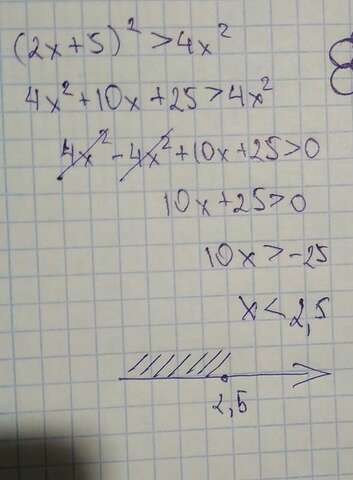 (2x+5)² > 4x²
4x²+10x+25 > 4x²
4x² - 4x² + 10x + 25 > 0
10x + 25 > 0
10x > -25
x < 2,5
2,5